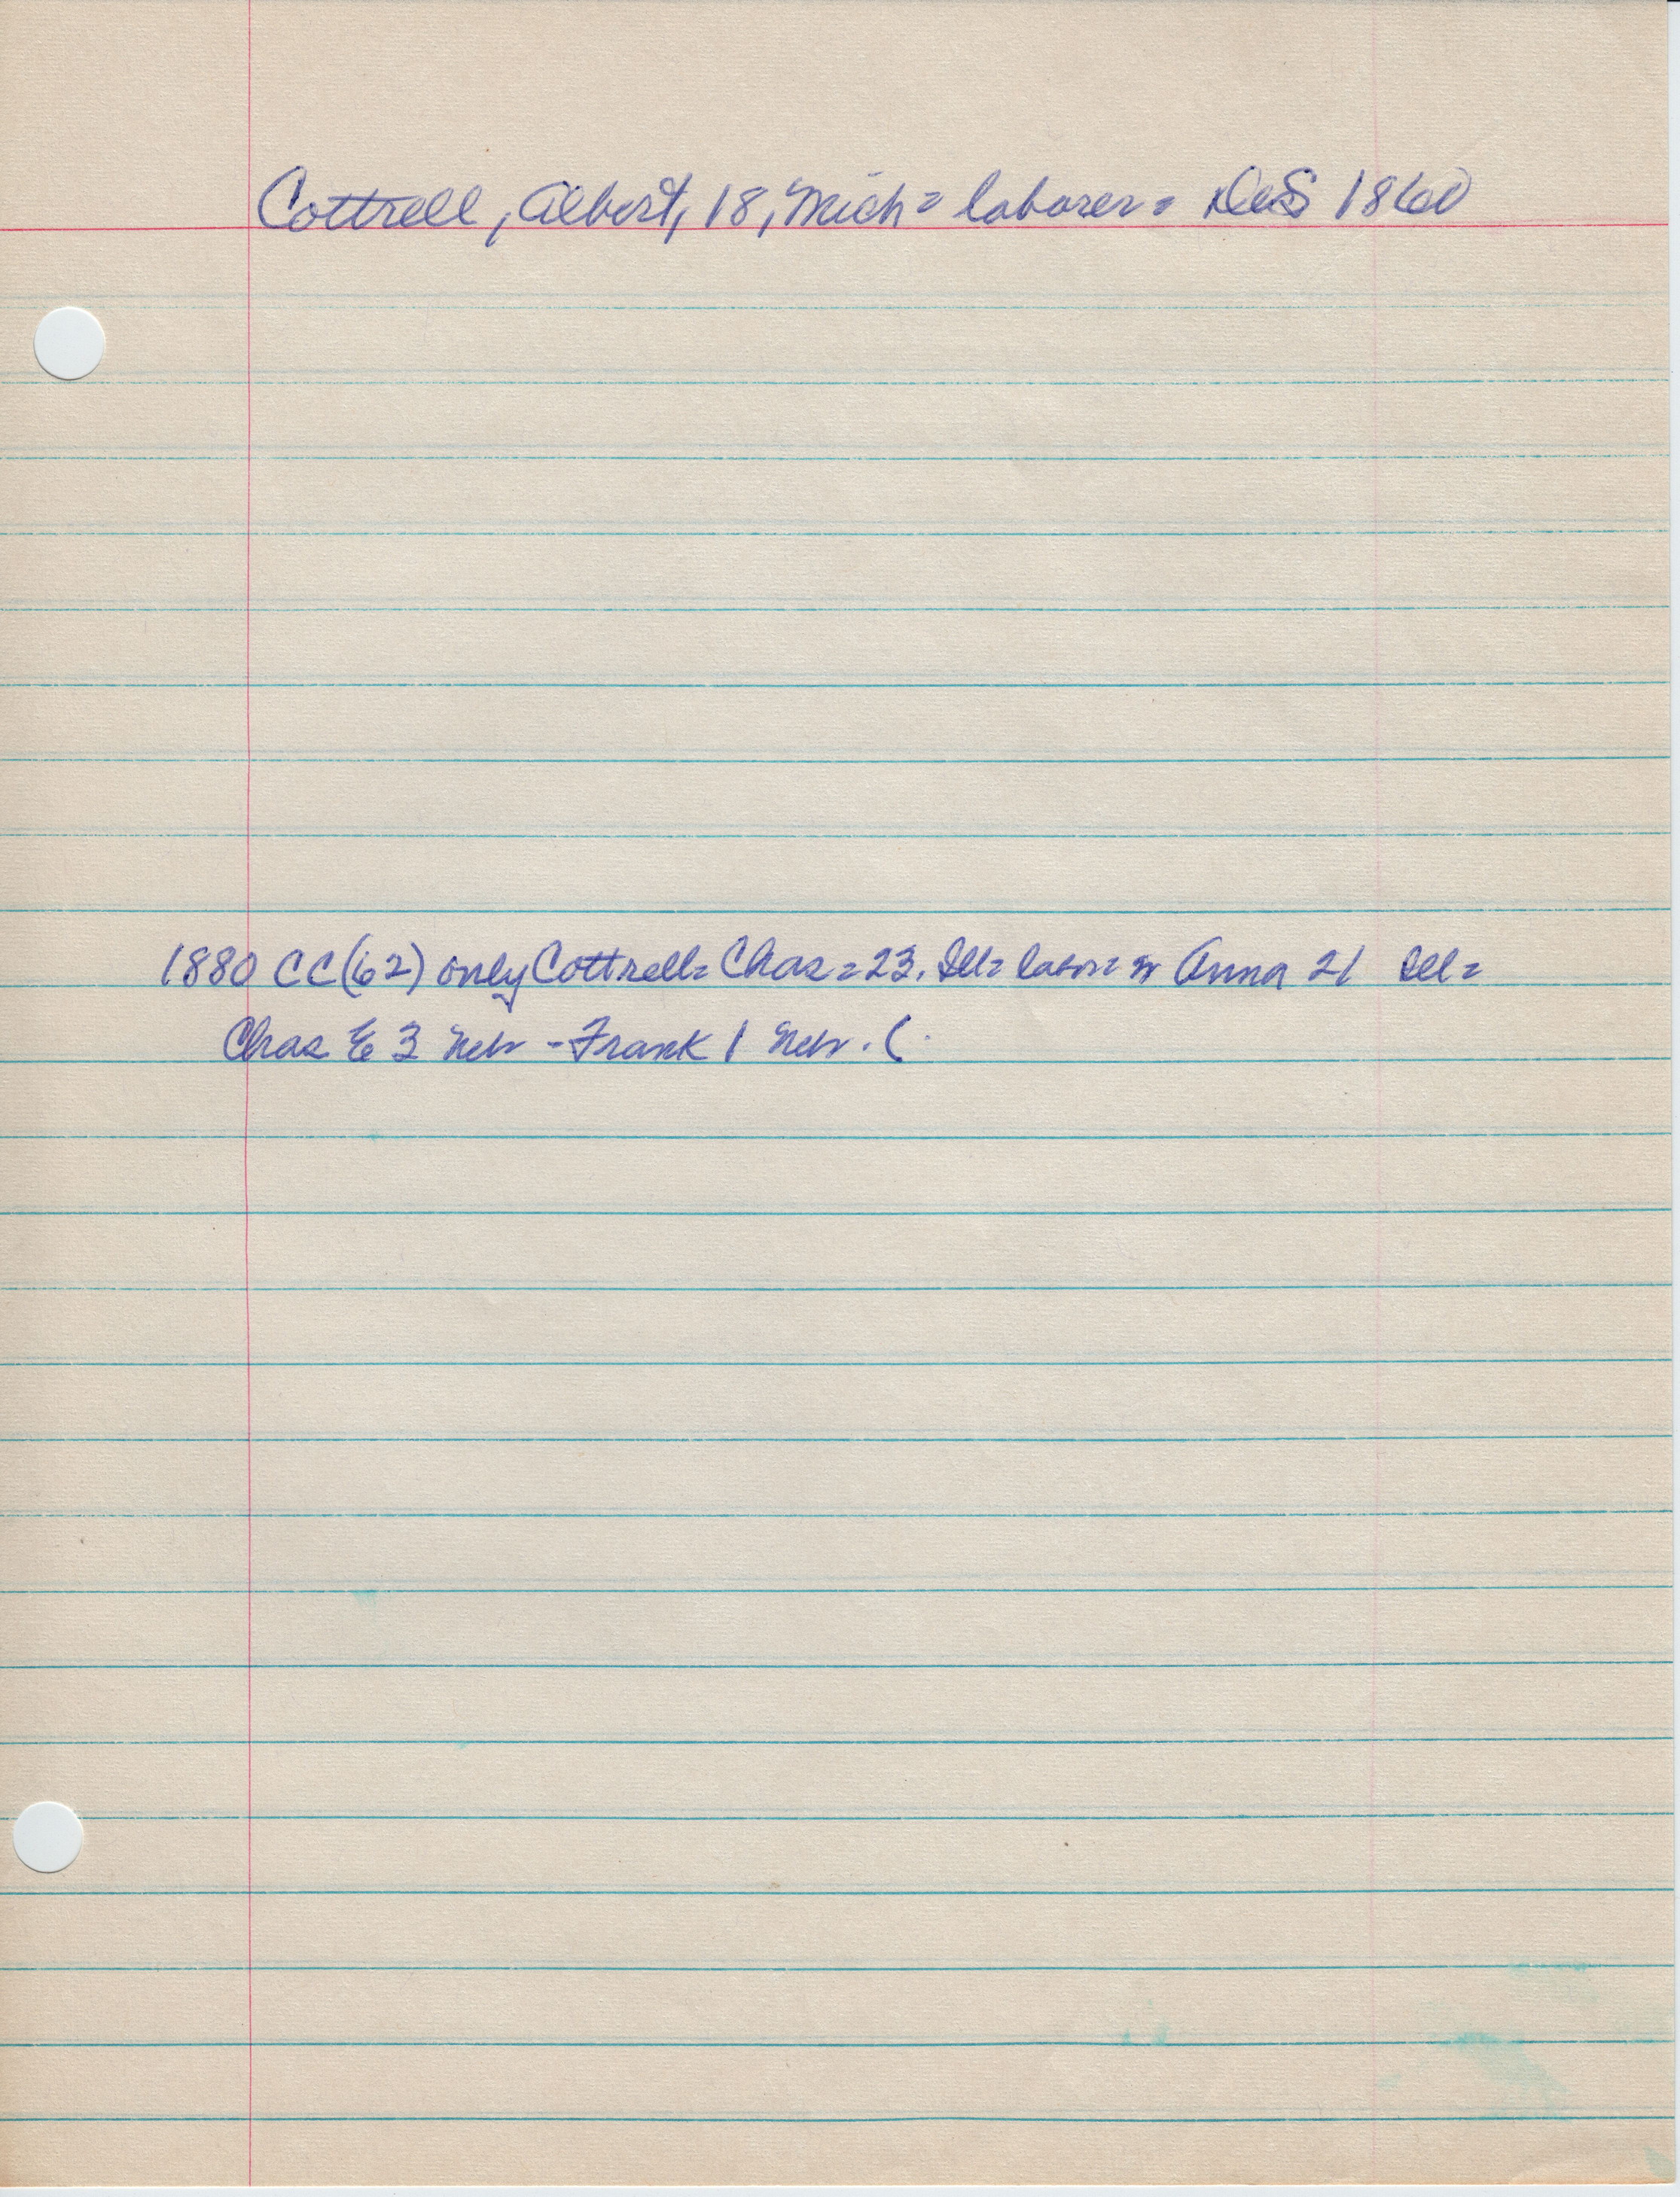 Cottrell, Albert, 18, Mich = laborer = DeS 1860
1880 CC (62) only Cottrell = Chas = 23. Ill = labor = w Anna 21 Ill =
Chas E 3 Neb - Frank 1 Neb. (